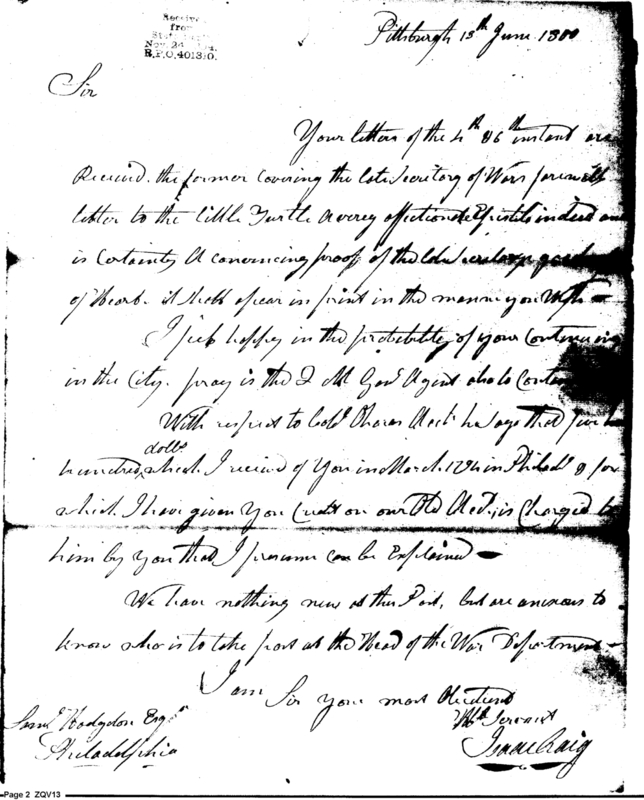 Received
from
State
Nov. 24
R.F.O. 401310.
Pittsburgh 13th June 1800
Sir
Your letters of the 4th & 6th instant are
Received. the former covering the late Secretary of Wars farewell
letter to the little Turtle a verey affectionate Epistle indeed and
is Certainly a convincing proof of the late Secretarys
of Heart. it shall apear in print in the manner you wish
I feel happy in the probability of your Continuing
in the City. pray is the Agent also to
With respect to Colo. Oharas Acct. he says that
hundred dolls. which I receivd of You in March 1794 in Philada. & for
which I have given You Credit on our Old Acct., is Charged to
him by you that I presume can be Explained
We have nothing new at this Post, but are anxious to
know who is to take post at the Head of the War Department
I am Sir your most Obedient
Servant
Isaac Craig
Saml. Hodgdon Esqr.
Philadelphia
Page 2 ZQV13